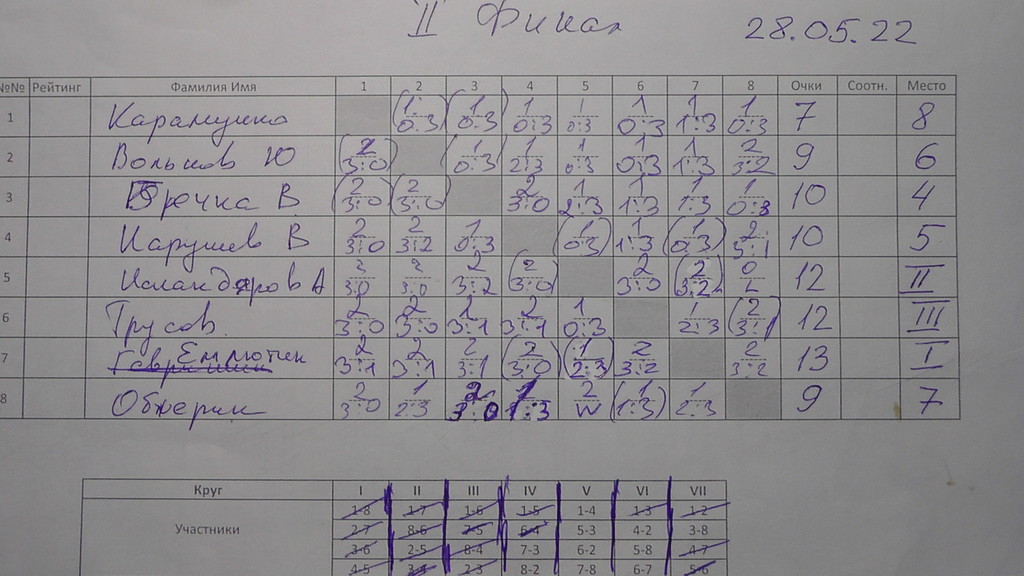 II Финал 28.05.22
№№ Рейтинг Фамилия Имя 1 2 3 4 5 6 7 8 Очки Соотн. Место
1 Карамушко 1 0:3 1 0:3 1 0:3 1 0:3 1 0:3 1 1:3 1 0:3 7 8
2 Волынов Ю 2 3:0 1 0:3 1 2:3 1 0:3 1 0:3 1 1:3 2 3:2 9 6
3 Гречка В. 2 3:0 2 3:0 2 3:0 1 2:3 1 1:3 1 1:3 1 0:3 10 4
4 Карушев В 2 3:0 2 3:2 1 0:3 1 0:3 1 1:3 1 0:3 2 3:1 10 5
5 Искандяров А 2 3:0 2 3:0 2 3:2 2 3:0 2 3:0 2 3:2 0 L 12 II
6 Трусов 2 3:0 2 3:0 2 3:1 2 3:1 1 0:3 1 2:3 2 3:1 12 III
7 Емлютин 2 3:1 2 3:1 2 3:1 2 3:0 1 2:3 2 3:2 2 3:2 13 I
8 Обжерин 2 3:0 1 2:3 2 3:0 1 1:3 2 W 1 1:3 1 2:3 9 7
Круг I II III IV V VI VII
Участники
1-8 1-7 1-6 1-5 1-4 1-3 1-2
2-7 8-6 7-5 6-4 5-3 4-2 3-8
3-6 2-5 8-4 7-3 6-2 5-8 4-7
4-5 3-4 2-3 8-2 7-8 6-7 5-6